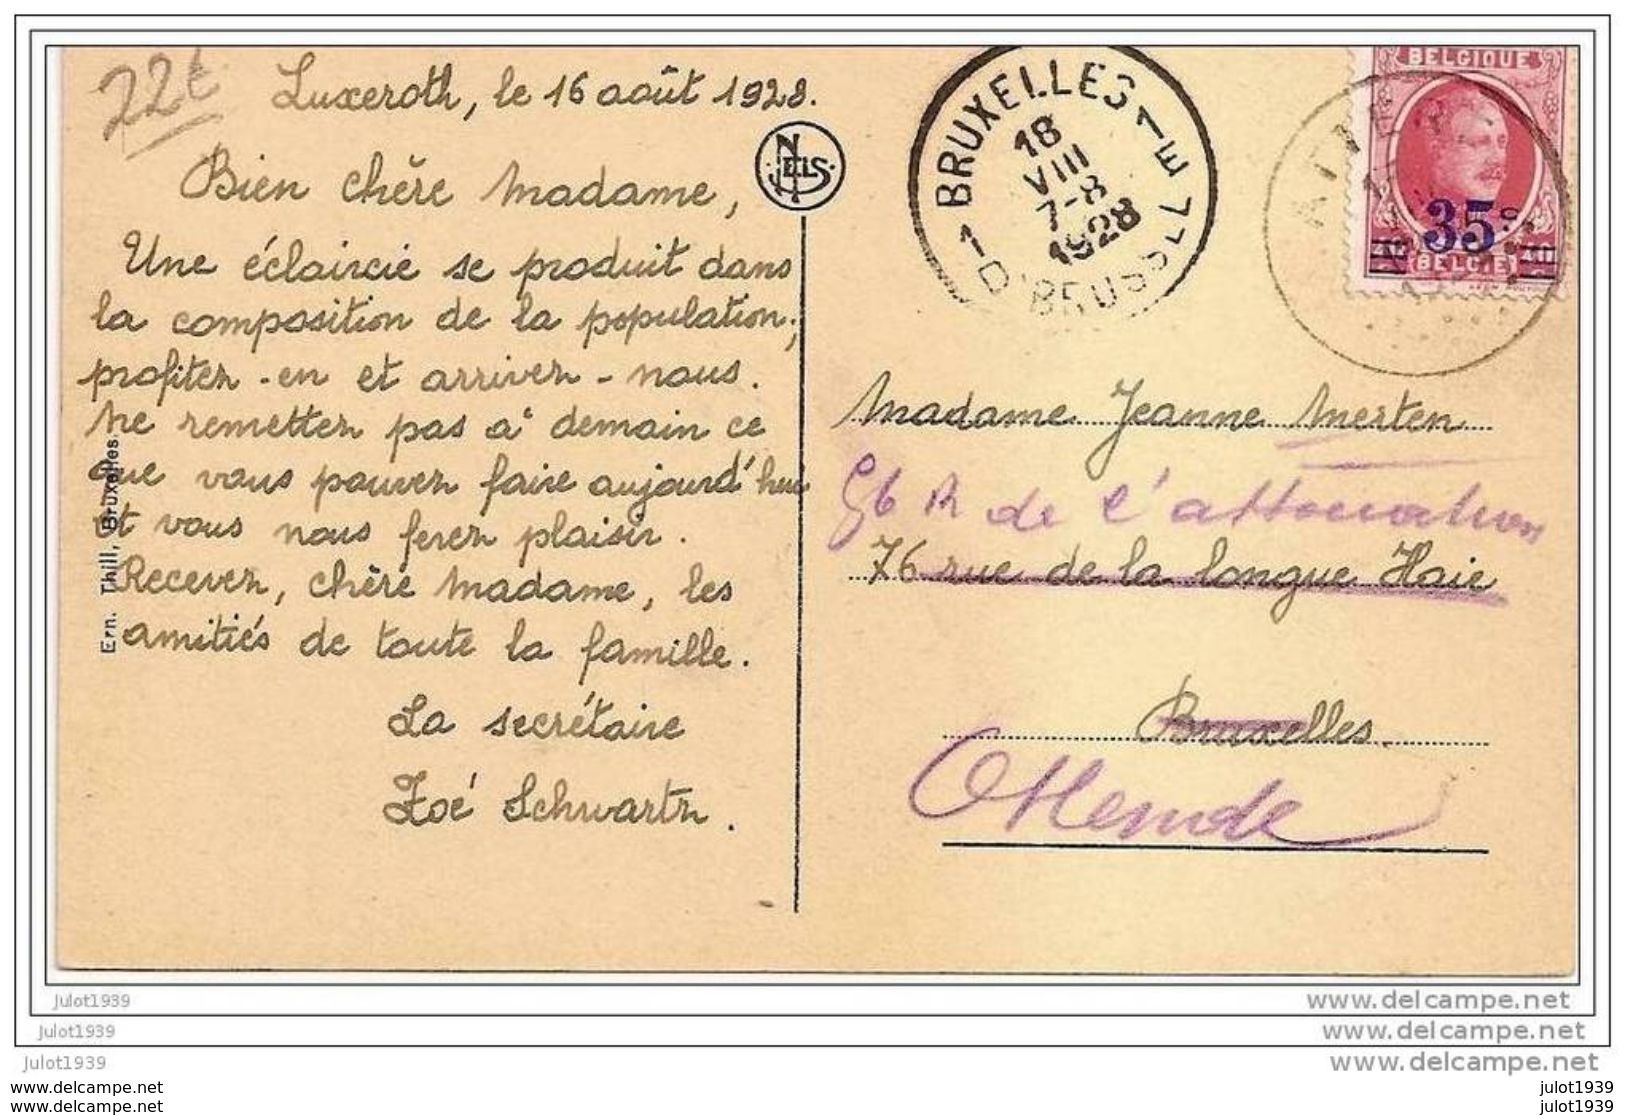 22t
Luxeroth, le 16 août 1928.
Bien chère Madame,
Une éclaircie se produit dans
la composition de la population,
profitez-en et arrivez-nous.
Ne remettez pas à demain ce
que vous pouvez faire aujourd'hui
et vous nous ferez plaisir.
Recevez, chère Madame, les
amitiés de toute la famille.
La secrétaire
Zoé Schwartz.
Ern. Thill, Bruxelles.
NELS
1 BRUXELLES 1
18
VIII
7-8
1928
1D BRUSSEL 1E
BELGIQUE
35c
BELGIË
Madame Jeanne Merten
de l'
76 rue de la longue Haie
Bruxelles.
Ostende
julot1939
julot1939
julot1939
www.delcampe.net
www.delcampe.net
www.delcampe.net
www.delcampe.net
www.delcampe.net
julot1939
julot1939